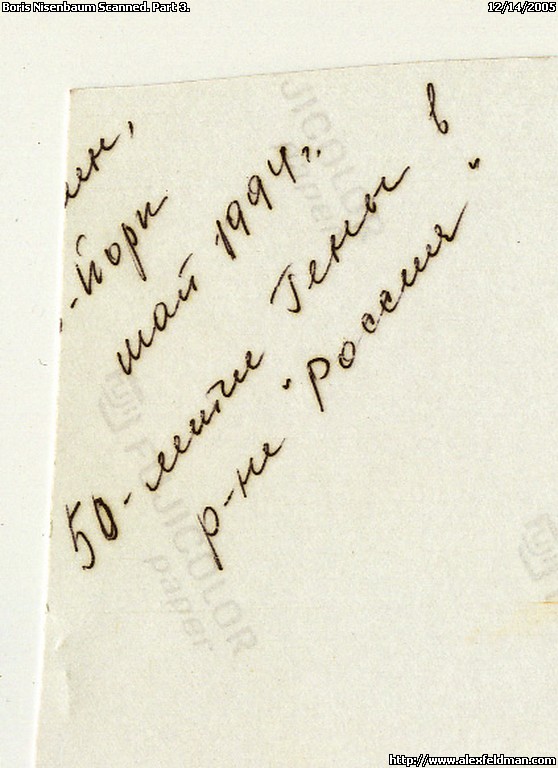 Boris Nisenbaum Scanned. Part 3.
12/14/2005
лен,
-Йорк
май 1994 г.
50-летие Гены в
р-не "Россия"
JICOLOR
paper
FUJI
FUJICOLOR
paper
http://www.alexfeldman.com